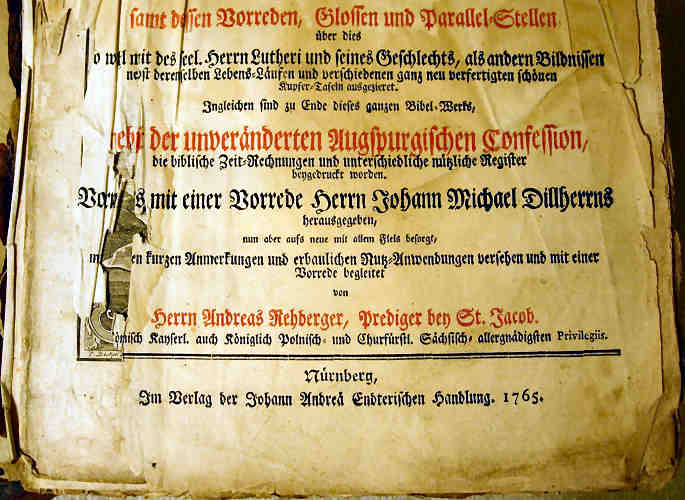 samt dessen Vorreden, Glossen und Parallel-Stellen
über dies
o wol mit des seel. Herrn Lutheri und seines Geschlechts, als andern Bildnissen
nebst derenselben Lebens-Läufen und verschiedenen ganz neu verfertigten schönen
Kupfer-Tafeln ausgezieret.
Ingleichen sind zu Ende dieses ganzen Bibel-Werks,
der unveränderten Augspurgischen Confession,
die biblische Zeit-Rechnungen und unterschiedliche nützliche Register
beygedruckt worden.
mit einer Vorrede Herrn Johann Michael Dillherrns
herausgegeben,
nun aber aufs neue mit allem Fleis besorgt,
en kurzen Anmerkungen und erbaulichen Nutz-Anwendungen versehen und mit einer
Vorrede begleitet
von
Herrn Andreas Rehberger, Prediger bey St. Jacob.
ömisch Kayserl. auch Königlich Polnisch- und Churfürstl. Sächsisch- allergnädigsten Privilegiis.
Nürnberg,
Im Verlag der Johann Andreä Endterischen Handlung. 1765.